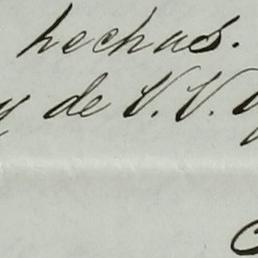 hechas.
y de V. V.